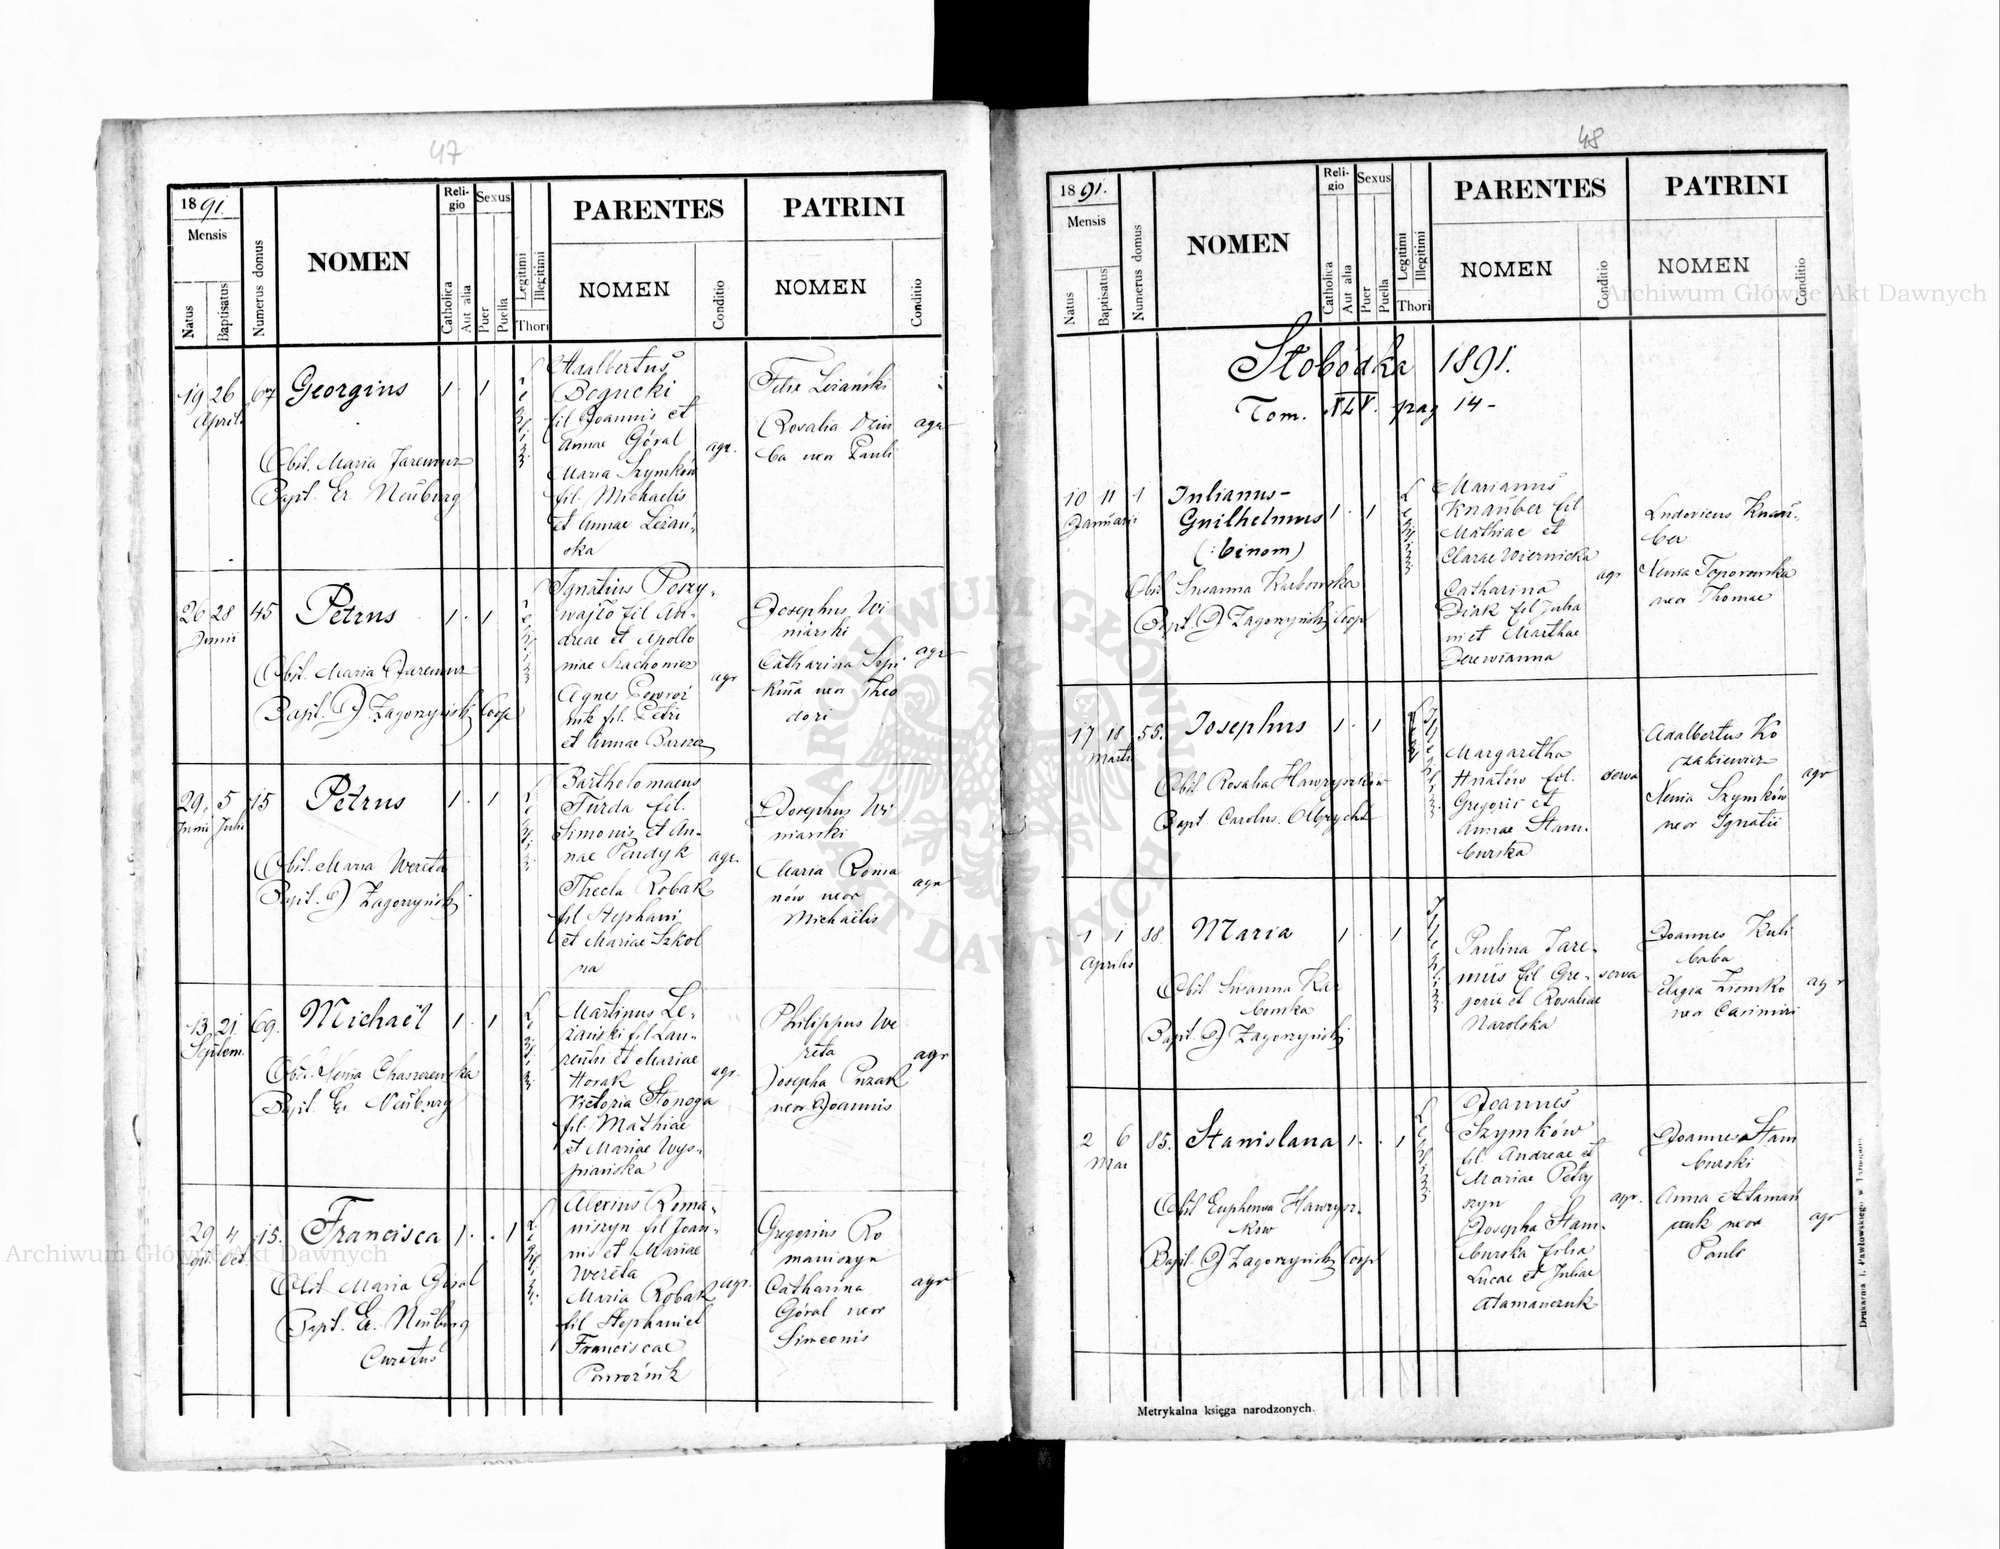 47
1891.
Mensis
Natus
Baptisatus
Numerus domus
NOMEN
Religio
Catholica
Aut alia
Sexus
Puer
Puella
Legitimi
Illegitimi
Thori
PARENTES
NOMEN
Conditio
PATRINI
NOMEN
Conditio
19 26 67 Georgius 1. 1
Aprilis
Obst. Maria Jaremus
Bapt. Er Neuburg
Adalbertus
Bogucki
fil Joannis et
Annae Góral
Maria Szymków
fil. Michaelis
et Annae Leżań-
ska
agr.
Leżański
Rosalia
ba uxor Pauli
agr
26 28 45 Petrus 1. 1
Junii
Obst. Maria Jaremus
Bapt. D Zagorzyński Coop
Ignatius Poszy-
wajło fil An-
dreae et Apollo
niae
Agnes Powroź
nik fil. Petri
et Annae
agr
Josephus Wi
niarski
Catharina
uxor Theo
dori
agr
29. 5 15 Petrus 1. 1
Junii Julii
Obst. Maria Wereta
Bapt. D Zagorzyński
Bartholomaeus
Furda fil.
Simonis et An-
nae Pendyk
Thecla Robak
fil Stephani
et Mariae Szkol
na
agr.
Josephus Wi
niarski
Maria Roma
nów uxor
Michaëlis
agr
13. 21. 69. Michaël 1. 1
Septem.
Obst. Xenia
Bapt. Er. Neuburg
Martinus Le-
żański fil Lau-
rentii et Mariae
Horak
Victoria Stonoga
fil. Mathiae
et Mariae Wys-
piańska
agr.
Philippus We
reta
Josepha Puzak
uxor Joannis
agr
29 4 15. Francisca 1. . 1
Sept. Oct.
Obst Maria Góral
Bapt. Er. Neuburg
Curatus
Alexius Roma-
niszyn fil Joan-
nis et Mariae
Wereta
Maria Robak
fil Stephani et
Franciscae
Powroźnik
agr.
Gregorius Ro
maniszyn
Catharina
Góral uxor
Simeonis
agr
48
1891.
Mensis
Natus
Baptisatus
Numerus domus
NOMEN
Religio
Catholica
Aut alia
Sexus
Puer
Puella
Legitimi
Illegitimi
Thori
PARENTES
NOMEN
Conditio
PATRINI
NOMEN
Conditio
Słobódka 1891.
Tom. XLV. pag 14-
10 11 1 Julianus-
Januarii Guilhelmus 1. 1
(:binom)
Obst Susanna Karbowska
Bapt. D Zagorzyński Coop
Marianus
Knauber fil
Mathiae et
Clarae Wiernicka
Catharina
Diak fil Julia
ni et Marthae
Derewianna
agr
Ludovicus Knau-
ber
Xenia Toporowska
uxor Thomae
17 18 55. Josephus 1. 1
Martii
Obst Rosalia Hawryszków
Bapt Carolus Olbrycht
Margaretha
Hnatów fil.
Gregorii et
Annae Stam-
burska
serva
Adalbertus Ko
zakiewicz
Xenia Szymków
uxor Ignatii
agr
1 1 88 Maria 1. 1
Aprilis
Obst Susanna Kar
bowska
Bapt. D Zagorzyński
Paulina Jare-
mus fil Gre-
gorii et Rosaliae
Narolska
serva
Joannes Kuli
baba
Pelagia Ziomko
uxor Casimiri
agr
2 6 85. Stanislava 1. . 1
Mai
Obst Euphemia Hawrysz-
ków
Bapt. D Zagorzyński Coop
Joannes
Szymków
fil. Andreae et
Mariae Petry
szyn
Josepha Stam-
burska filia
Lucae et Juliae
Atamańczuk
agr.
Joannes Stam
burski
Anna Atamań
czuk uxor
Pauli
agr
Metrykalna księga narodzonych.
Drukarnia J. Pawłowskiego w Tarnopolu
Archiwum Główne Akt Dawnych
Archiwum Główne Akt Dawnych
ARCHIWUM GŁÓWNE AKT DAWNYCH